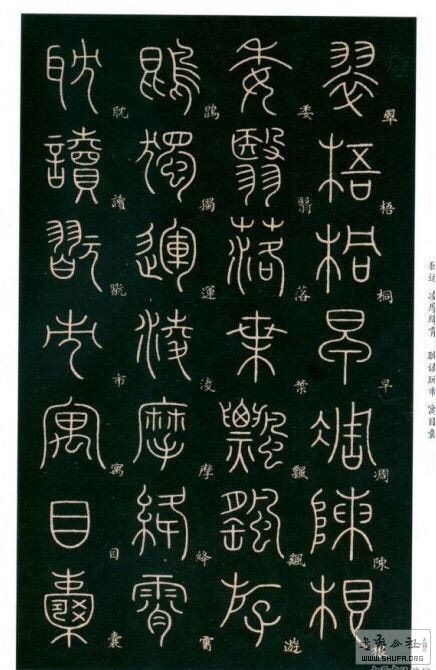 独运 凌摩绛霄 耽读玩市 寓目囊
翠梧桐早凋陳根
翠梧桐早凋陳
委翳落葉飄颻遊
委翳落葉飄颻遊
鵾獨運凌摩絳霄
鵾獨運凌摩絳霄
耽讀翫市寓目囊
耽讀翫市寓目囊
WWW.SHUFA.ORG